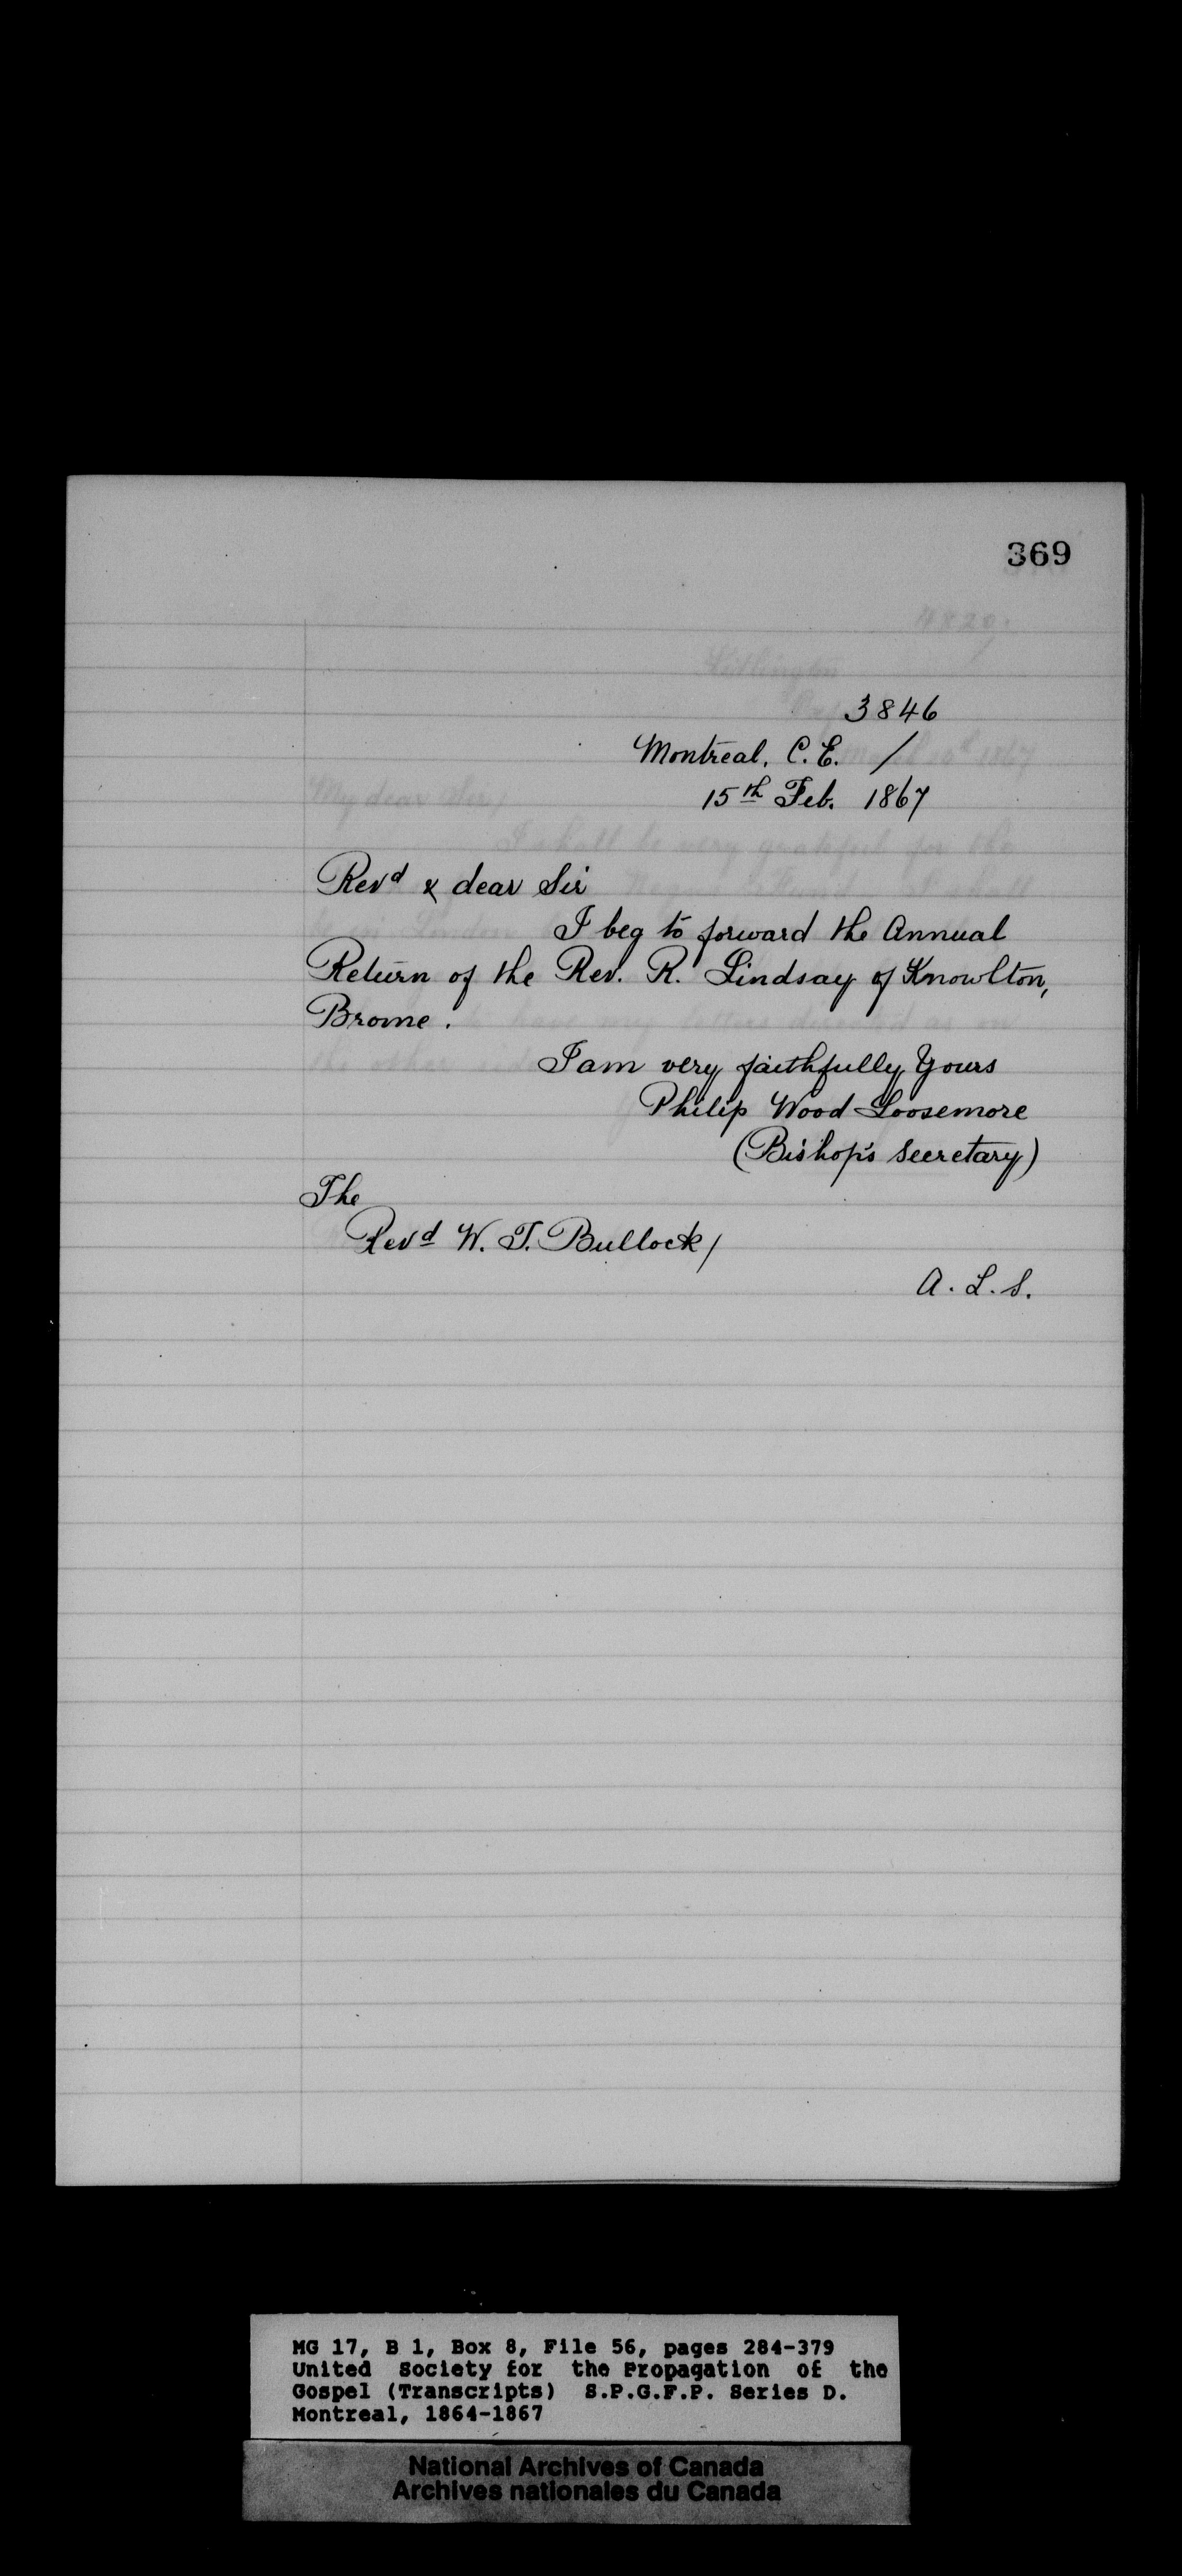 369
3846
Montreal, C.E. /
15th Feb. 1867
Revd & dear Sir
I beg to forward the Annual
Return of the Rev. R. Lindsay of Knowlton,
Brome.
I am very faithfully Yours
Philip Wood Loosemore
(Bishop's Secretary)
The
Revd W. T. Bullock/
A. L. S.
MG 17, B 1, Box 8, File 56, pages 284-379
United Society for the Propagation of the
Gospel (Transcripts) S.P.G.F.P. Series D.
Montreal, 1864-1867
National Archives of Canada
Archives nationales du Canada